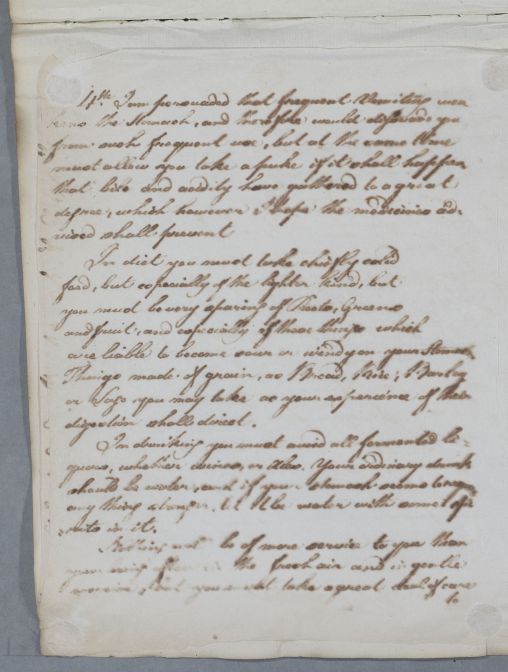 4th. I am persuaded that frequent Vomiting wea
kens the Stomach, and therefore would disswade you
from such frequent use, but at the same time
must allow you take a puke if it shall happen
that bile and acidity have gathered to a great
degree, which however I hope the medicines ad-
vised shall prevent
In diet you must take chiefly
food, but especially of the lighter kind, but
you must be very sparing of Roots, Greens
and fruit, and especially of those things which
are liable to become sour or windy on your Stomach
Things made of grain, as Bread, Rice, Barley
or Sago you may take as your experience of their
digestion shall direct.
In drinking you must avoid all fermented li-
quors, whether wines, or Ales. Your ordinary drink
should be water, and if your stomach
any thing stronger, let it be water with some spi-
rits in it.
Nothing will be of more service to you than
in the fresh air and in gentle
but you must take a great deal of care
to